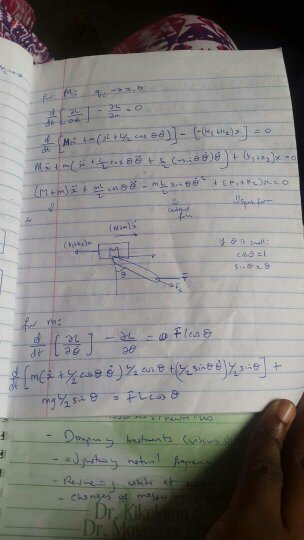 for M: qᵢ → x, θ
d/dt [∂L/∂ẋ] - ∂L/∂x = 0
d/dt [Mẋ + m(ẋ + L/2 cosθ θ̇)] - [-(k₁+k₂)x] = 0
Mẍ + m(ẍ + L/2 cosθ θ̈ + L/2 (-sinθ θ̇)θ̇) + (k₁+k₂)x = 0
(M+m)ẍ + mL/2 cosθ θ̈ - mL/2 sinθ θ̇² + (k₁+k₂)x = 0
(M+m)ẍ
(k₁+k₂)x
M
θ
F
if θ is small:
cosθ = 1
sinθ ≈ θ
for m:
d/dt [∂L/∂θ̇] - ∂L/∂θ = F L cosθ
d/dt [m(ẋ + L/2 cosθ θ̇) L/2 cosθ + (L/2 sinθ θ̇) L/2 sinθ] +
mg L/2 sinθ = F L cosθ
- Damping treatments (viscous
- adjusting natural
- Reducing
- changes of
Dr. Kikel
Dr. Mo